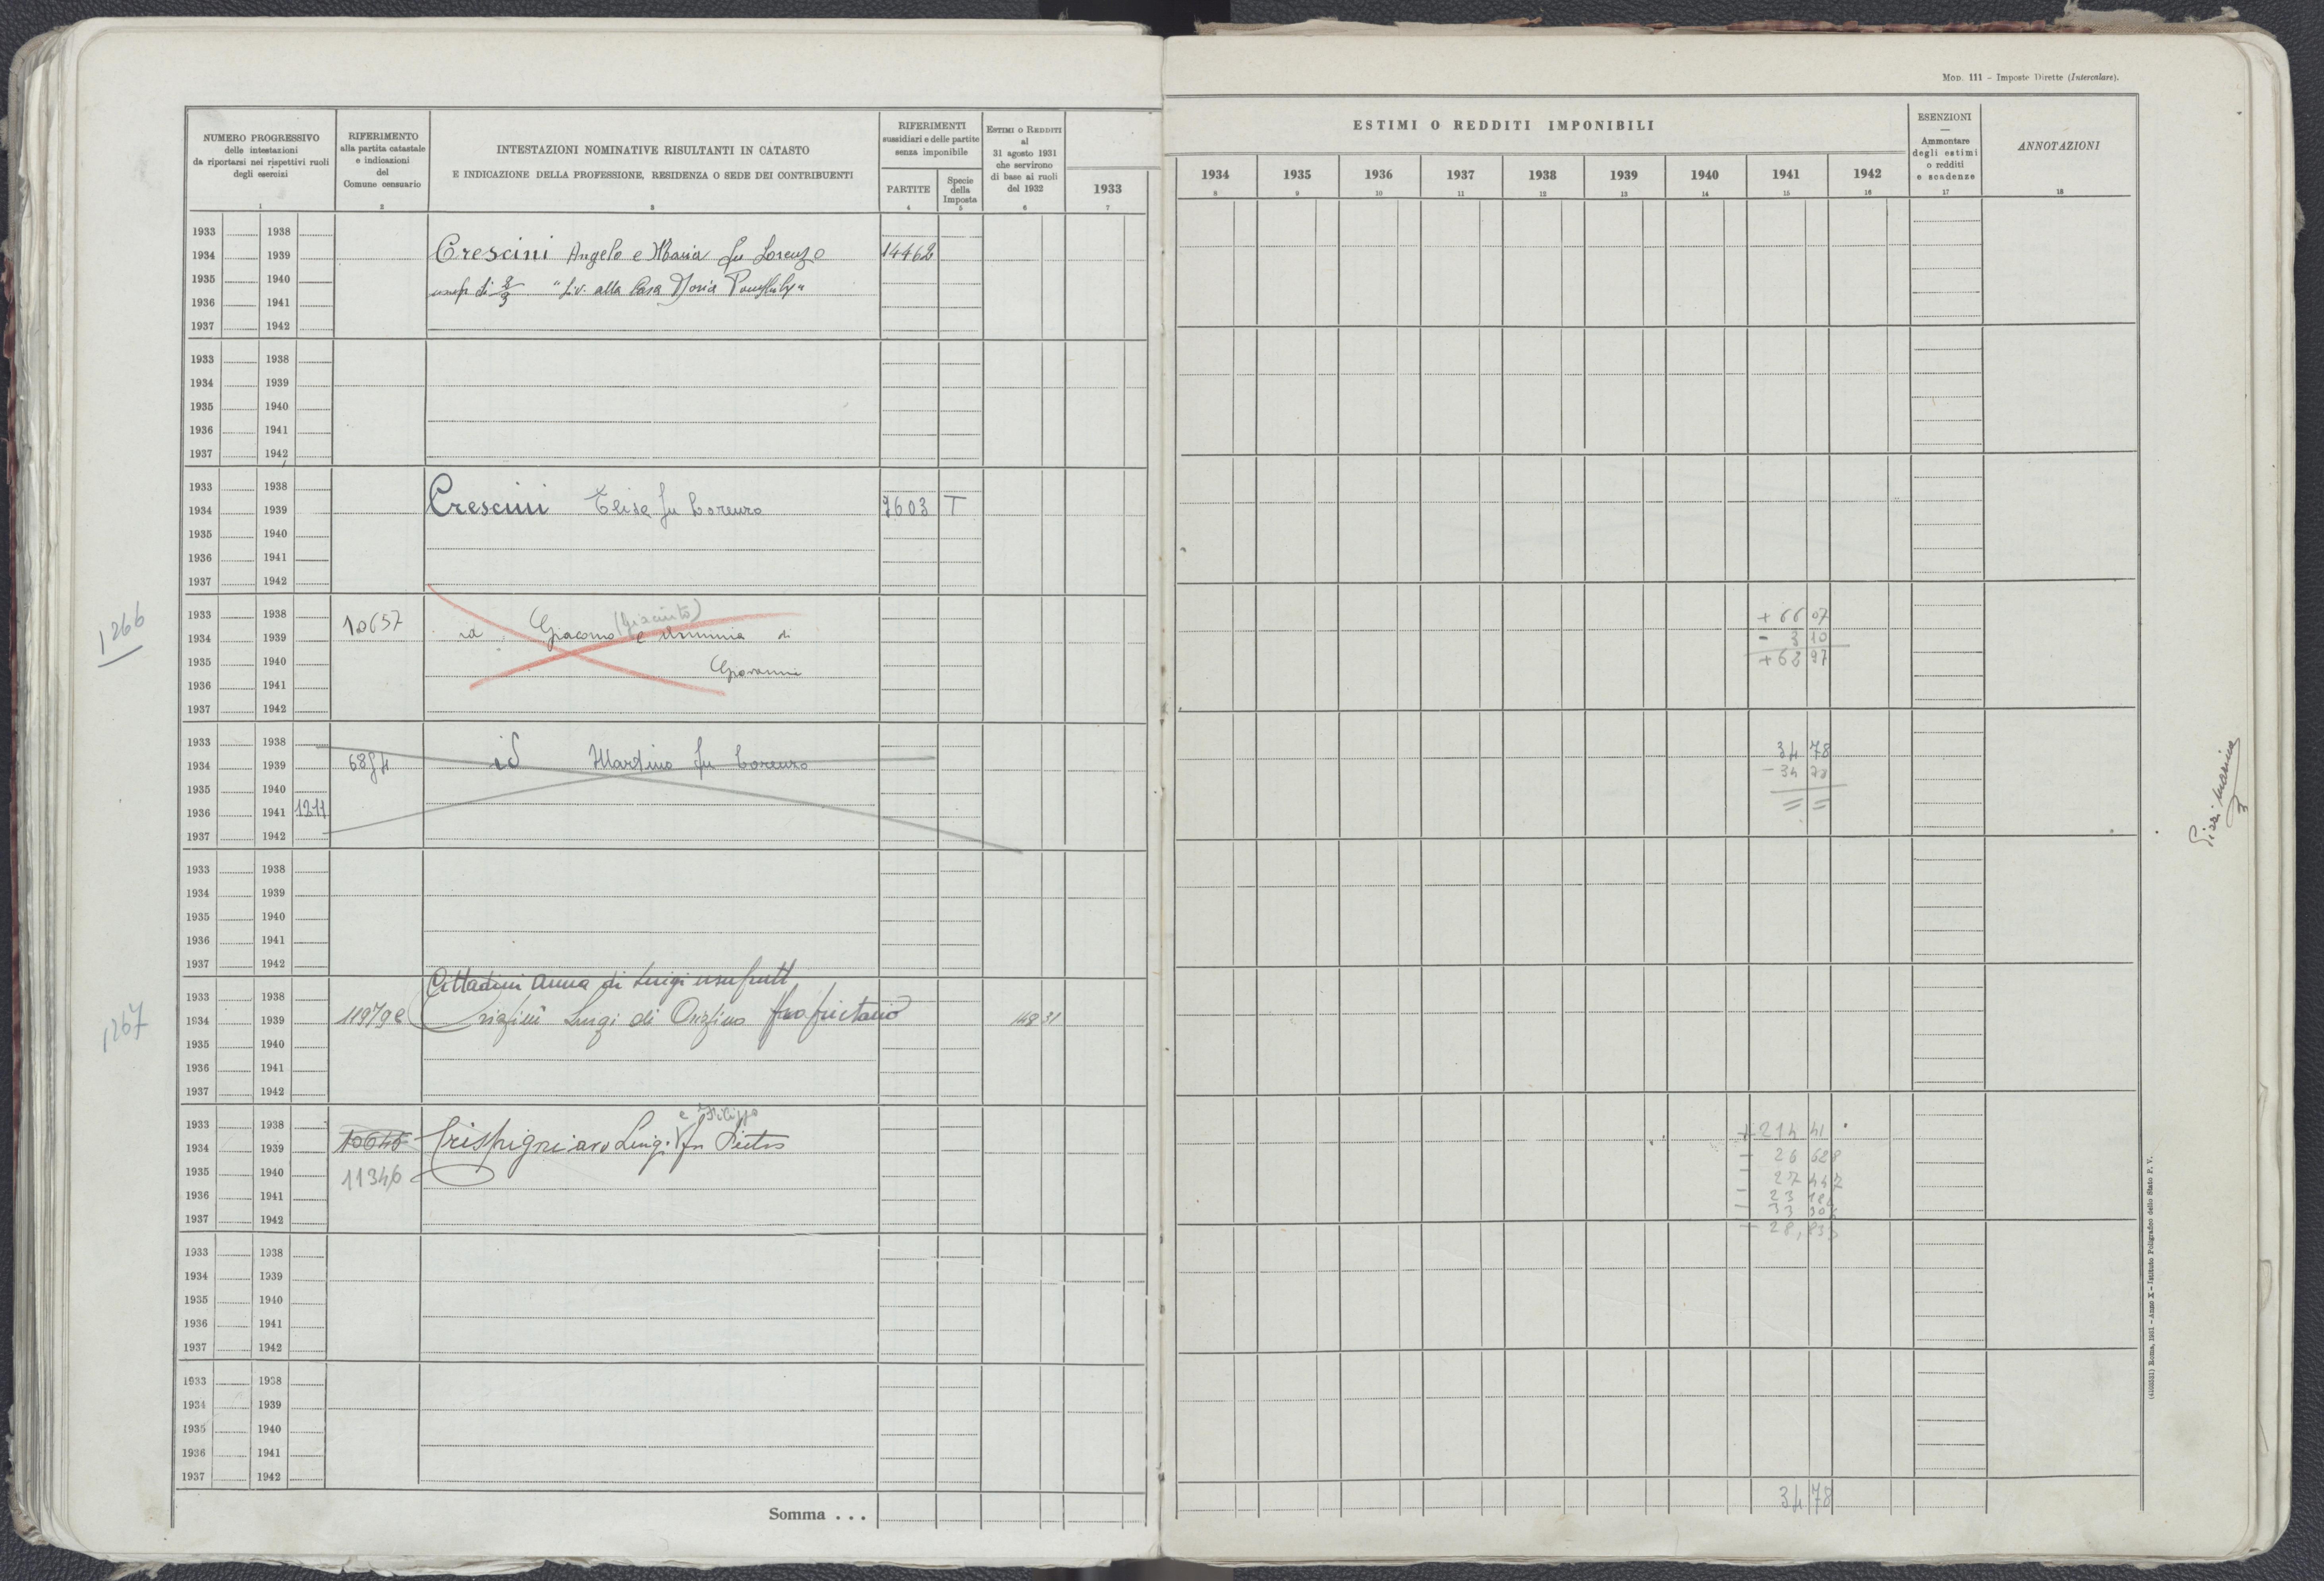 MOD. 111 - Imposte Dirette (Intercalare).
NUMERO PROGRESSIVO
delle intestazioni
da riportarsi nei rispettivi ruoli
degli esercizi
1
RIFERIMENTO
alla partita catastale
e indicazioni
del
Comune censuario
2
INTESTAZIONI NOMINATIVE RISULTANTI IN CATASTO
E INDICAZIONE DELLA PROFESSIONE, RESIDENZA O SEDE DEI CONTRIBUENTI
3
RIFERIMENTI
sussidiari e delle partite
senza imponibile
PARTITE
4
Specie
della
Imposta
5
ESTIMI O REDDITI
al
31 agosto 1931
che servirono
di base ai ruoli
del 1932
6
1933
7
ESTIMI O REDDITI IMPONIBILI
1934 1935 1936 1937 1938 1939 1940 1941 1942
8 9 10 11 12 13 14 15 16
ESENZIONI
Ammontare
degli estimi
o redditi
e scadenze
17
ANNOTAZIONI
18
1933 1938
1934 1939 Crescini Angelo e Maria fu Lorenzo 14462
1935 1940 usuf di 2/3 "liv. alla Casa Doria
1936 1941
1937 1942
1933 1938
1934 1939
1935 1940
1936 1941
1937 1942
1933 1938
1934 1939 Crescini Elisa fu Lorenzo 7603 T
1935 1940
1936 1941
1937 1942
1266
1933 1938 10657 (Giacinto) + 66 07
1934 1939 id Giacomo e Erminia di - 3 10
1935 1940 Giovanni + 62 97
1936 1941
1937 1942
1933 1938 34 78
1934 1939 id Martino fu Lorenzo - 34 78
1935 1940 = =
1936 1941 1211
1937 1942
1933 1938
1934 1939
1935 1940
1936 1941
1937 1942
Cittadini Anna di Luigi usufrutt
1267
1933 1938
1934 1939 Luigi di proprietario 148 31
1935 1940
1936 1941
1937 1942
e Filippo
1933 1938 + 214 41
1934 1939 10646 Crispigniaro Luigi fu Pietro - 26 628
1935 1940 11346 - 27 447
1936 1941 - 23
1937 1942 - 33
- 28,833
1933 1938
1934 1939
1935 1940
1936 1941
1937 1942
1933 1938
1934 1939
1935 1940
1936 1941
1937 1942
Somma . . . 34 78
(4103531) Roma, 1931 - Anno X - Istituto Poligrafico dello Stato P. V.